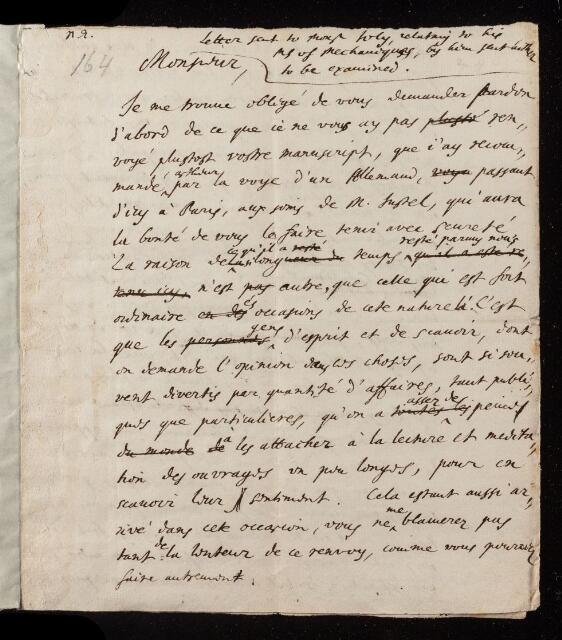 Letter sent to Monsr Joly, relating to his
MS of Mechaniques, by him sent hither
to be examined.
164
Monsieur,
Je me trouve obligé de vous demander pardon
d'abord de ce que ie ne vous ay pas plustot ren,,
voyé plustost vostre manuscript, que i'ay recom,,
mandé, par la voye d'un Allemand, passant
d'icy à Paris, aux soins de M. Justel, qui aura
la bonté de vous le faire tenir avec seureté.
La raison de ce qu'il a resté si long temps resté parmy nous
n'est pas autre, que celle qui est fort
ordinaire en des es occasions de cete nature là. C'est
que les personnes gens d'esprit et de scavoir, dont
on demande l'opinion dans ces choses, sont si sou,,
vent divertis par quantité d'affaires, tant publi,,
ques que particulieres, qu'on a toutes les assez de peines
du monde de a les attacher à la lecture et medita,,
tion des ouvrages un peu longes, pour en
scavoir leur sentiment. Cela estant aussi ar,,
rivé dans cete occasion, vous ne me blamerez pas
tant de la lonteur de ce renvoy, comme vous pourriez
faire autrement.